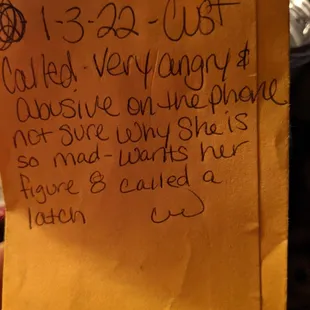 1-3-22 - Cust
Called - Very angry &
abusive on the phone
not sure why she is
so mad - wants her
figure 8 called a
latch